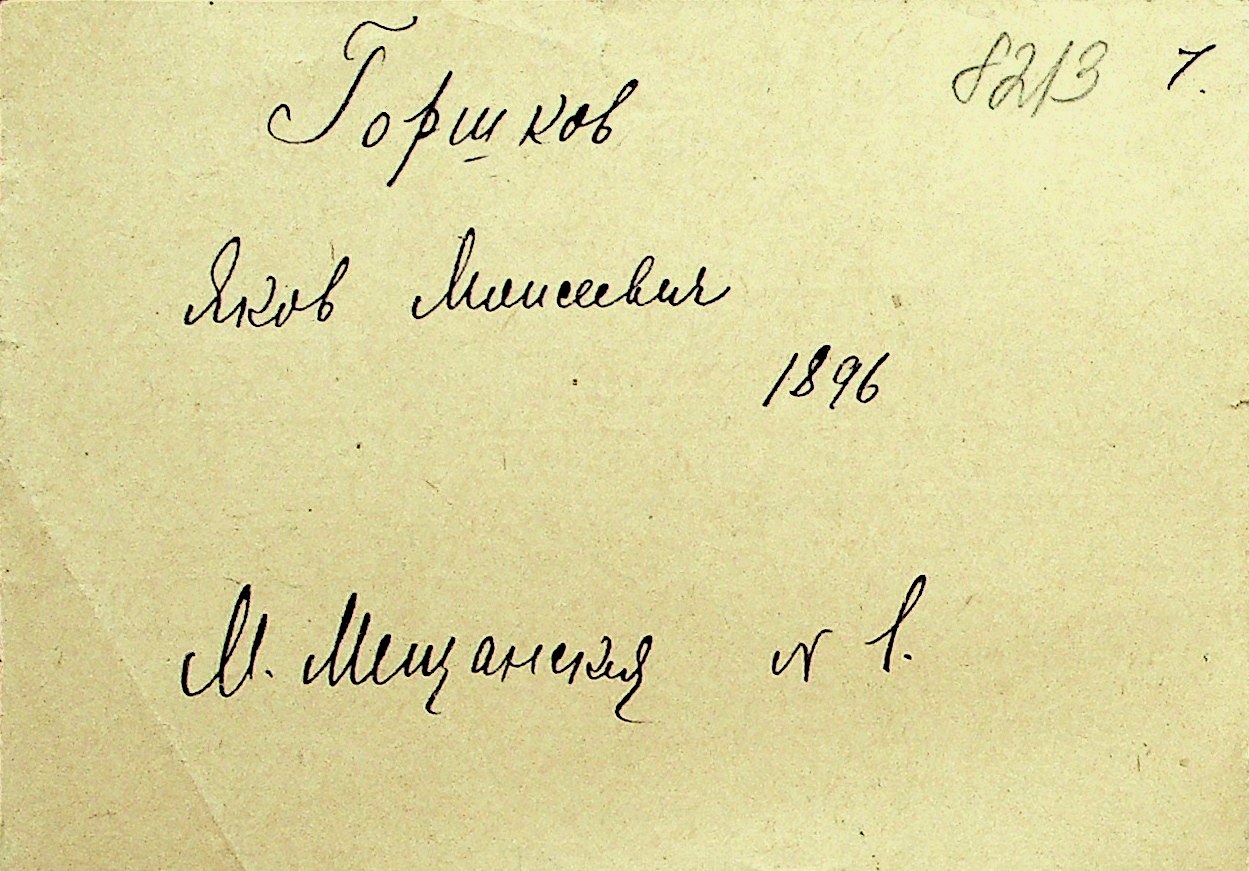 8213 7.
Горшков
Яков Моисеевич
1896
М. Мещанская № 1.